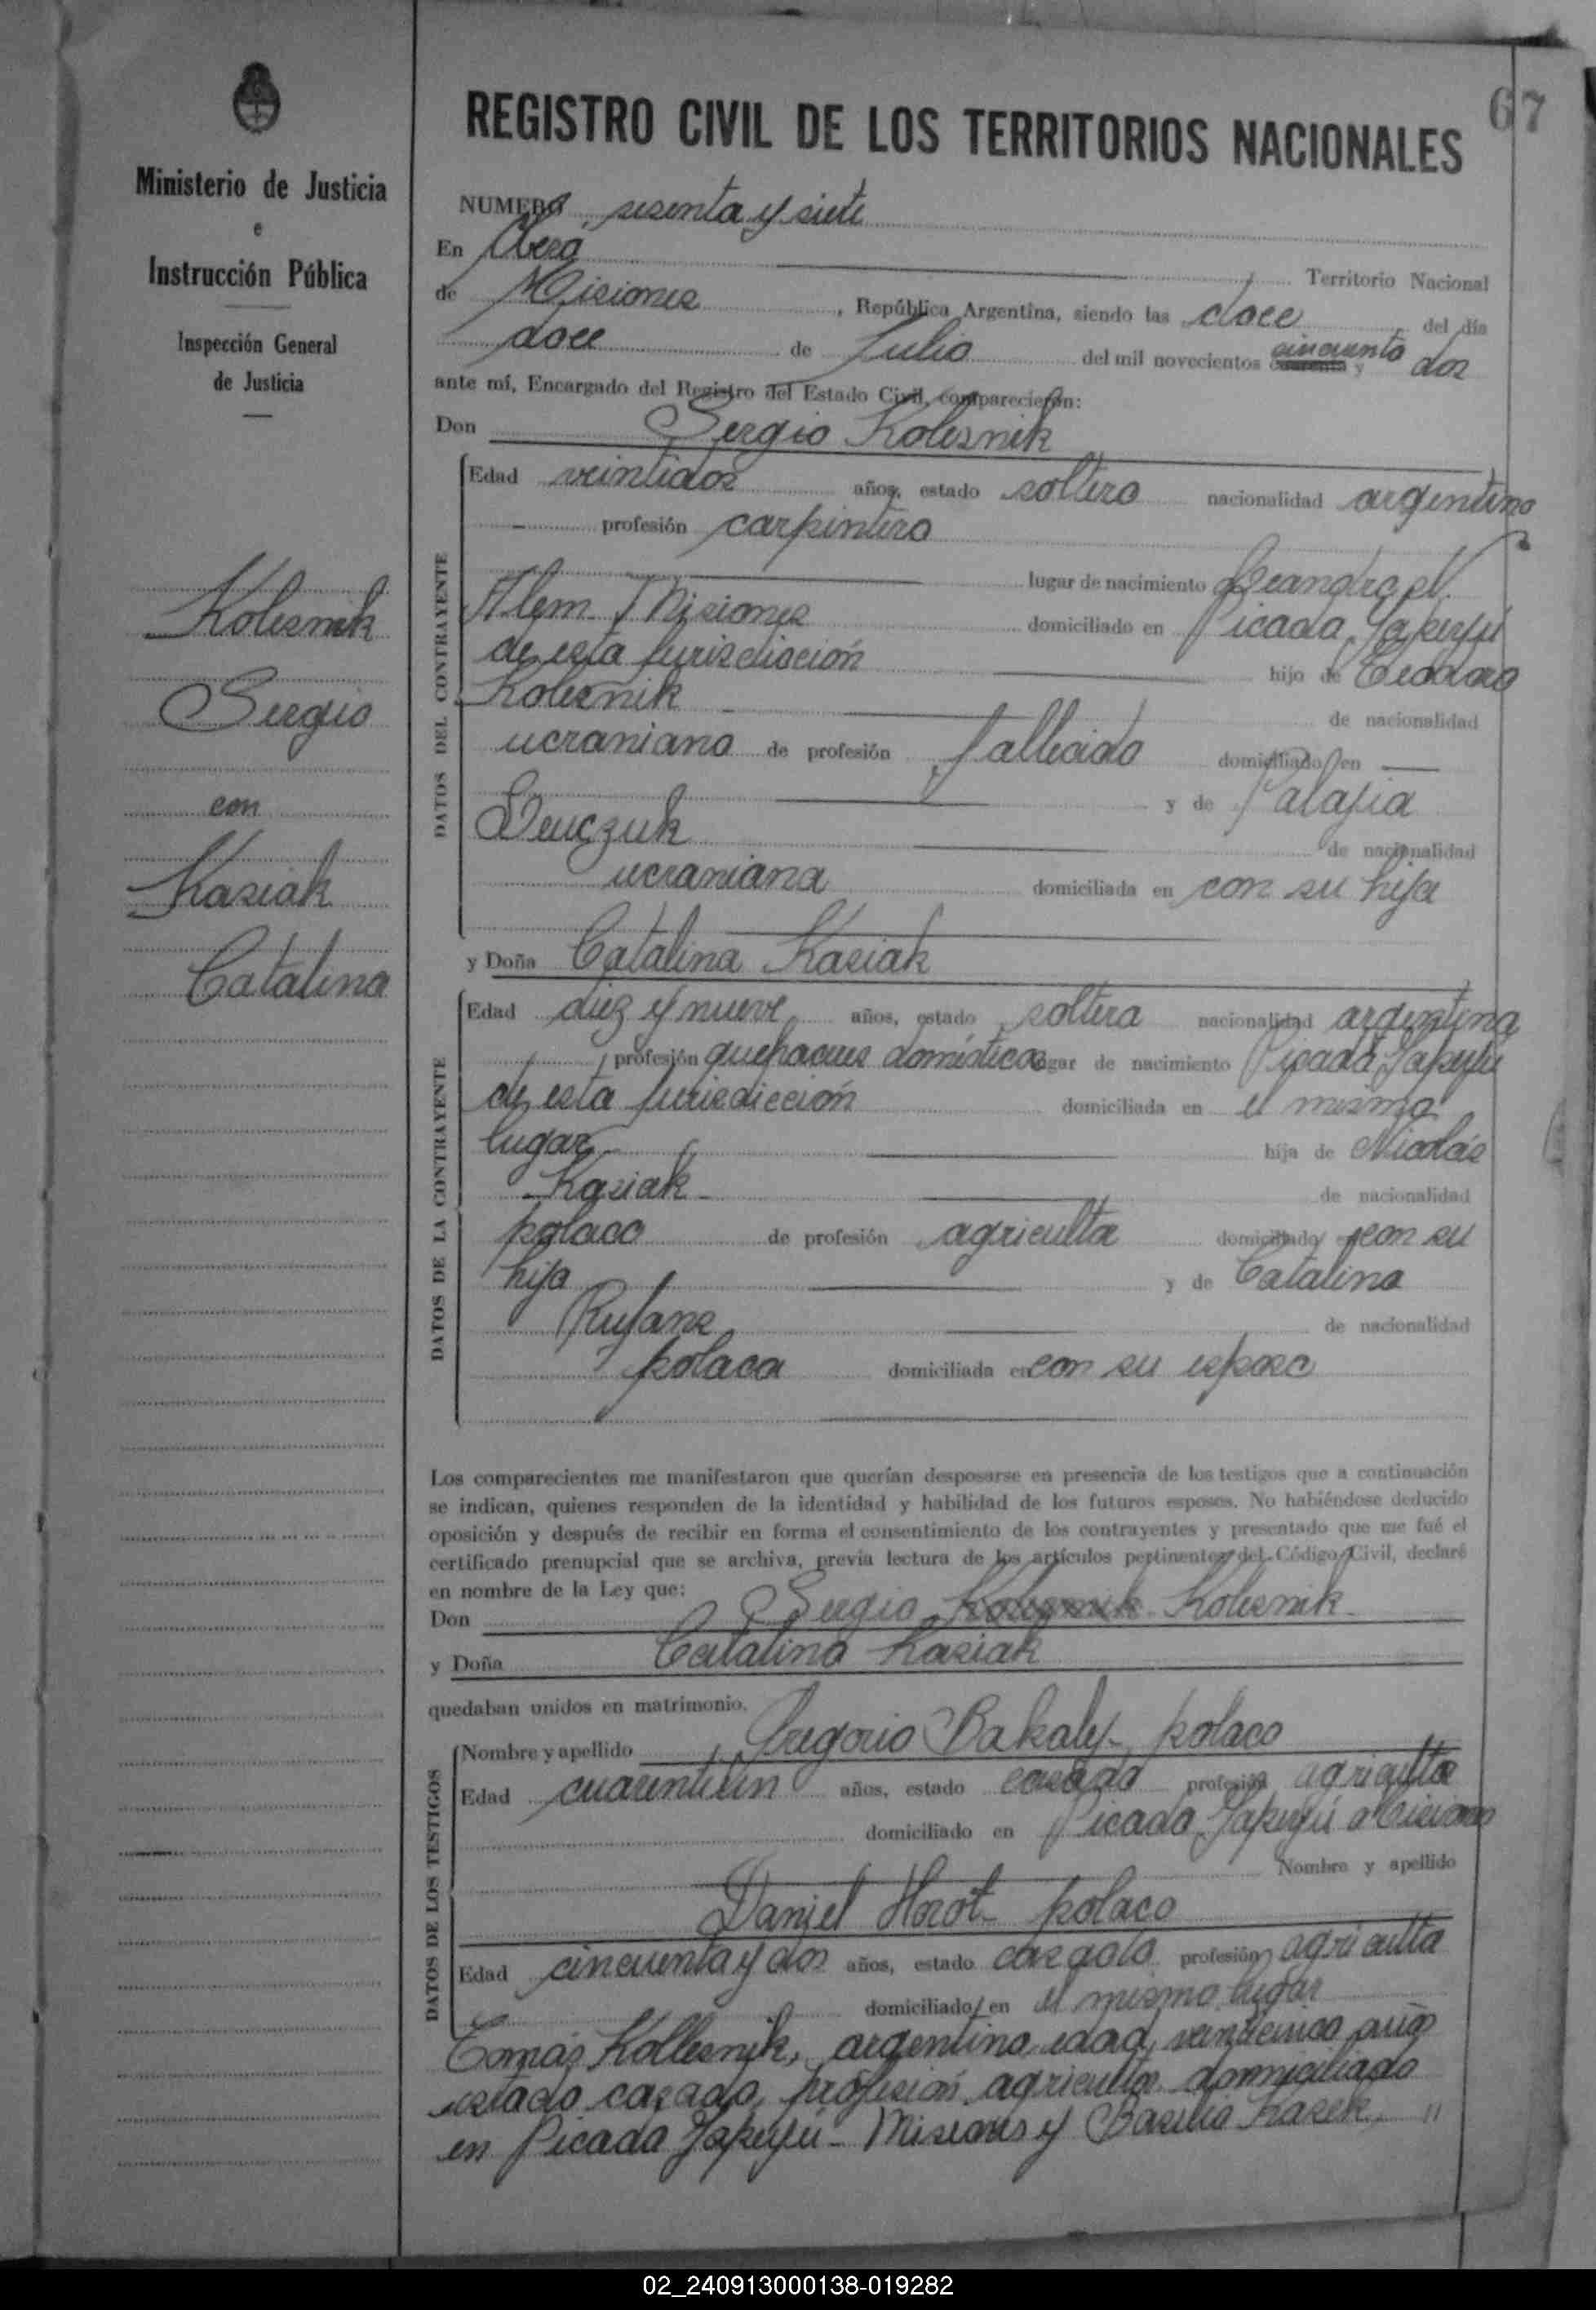 67
Ministerio de Justicia
e
Instrucción Pública
Inspección General
de Justicia
Kolesnik
Sergio
con
Kasiak
Catalina
REGISTRO CIVIL DE LOS TERRITORIOS NACIONALES
NUMERO sesenta y siete
En Oberá Territorio Nacional
de Misiones, República Argentina, siendo las doce del día
doce de Julio del mil novecientos cuarenta y cincuenta dos
ante mí, Encargado del Registro del Estado Civil, comparecieron:
Don Sergio Kolesnik
DATOS DEL CONTRAYENTE
Edad veintidos años, estado soltero nacionalidad argentino
profesión carpintero
lugar de nacimiento Leandro N.
Alem Misiones domiciliado en Picada Yapeyú
de esta jurisdicción hijo de Teodoro
Kolesnik de nacionalidad
ucraniano de profesión fallecido domiciliado en
y de Palajia
de nacionalidad
ucraniana domiciliada en con su hija
y Doña Catalina Kasiak
DATOS DE LA CONTRAYENTE
Edad diez y nueve años, estado soltera nacionalidad argentina
profesión quehaceres domésticos lugar de nacimiento Picada Yapeyú
de esta jurisdicción domiciliada en el mismo
lugar hija de Nicolás
Kasiak de nacionalidad
polaco de profesión agriculta domiciliado en con su
hija y de Catalina
de nacionalidad
polaca domiciliada en con su esposo
Los comparecientes me manifestaron que querían desposarse en presencia de los testigos que a continuación
se indican, quienes responden de la identidad y habilidad de los futuros esposos. No habiéndose deducido
oposición y después de recibir en forma el consentimiento de los contrayentes y presentado que me fué el
certificado prenupcial que se archiva, previa lectura de los artículos pertinentes del Código Civil, declaré
en nombre de la Ley que:
Don Sergio Kolesnik Kolesnik
y Doña Catalina Kasiak
quedaban unidos en matrimonio.
DATOS DE LOS TESTIGOS
Nombre y apellido Gregorio Bakaly - polaco
Edad cuarentiun años, estado casado profesión agriculta
domiciliado en Picada Yapeyú Misiones
Nombre y apellido
Daniel Horot - polaco
Edad cincuenta y dos años, estado casado profesión agriculta
domiciliado en el mismo lugar
Tomás Kollesnik, argentino edad veinticinco años
estado casado, profesión agriculta domiciliado
en Picada Yapeyú - Misiones y Basilio Kasek "
02_240913000138-019282